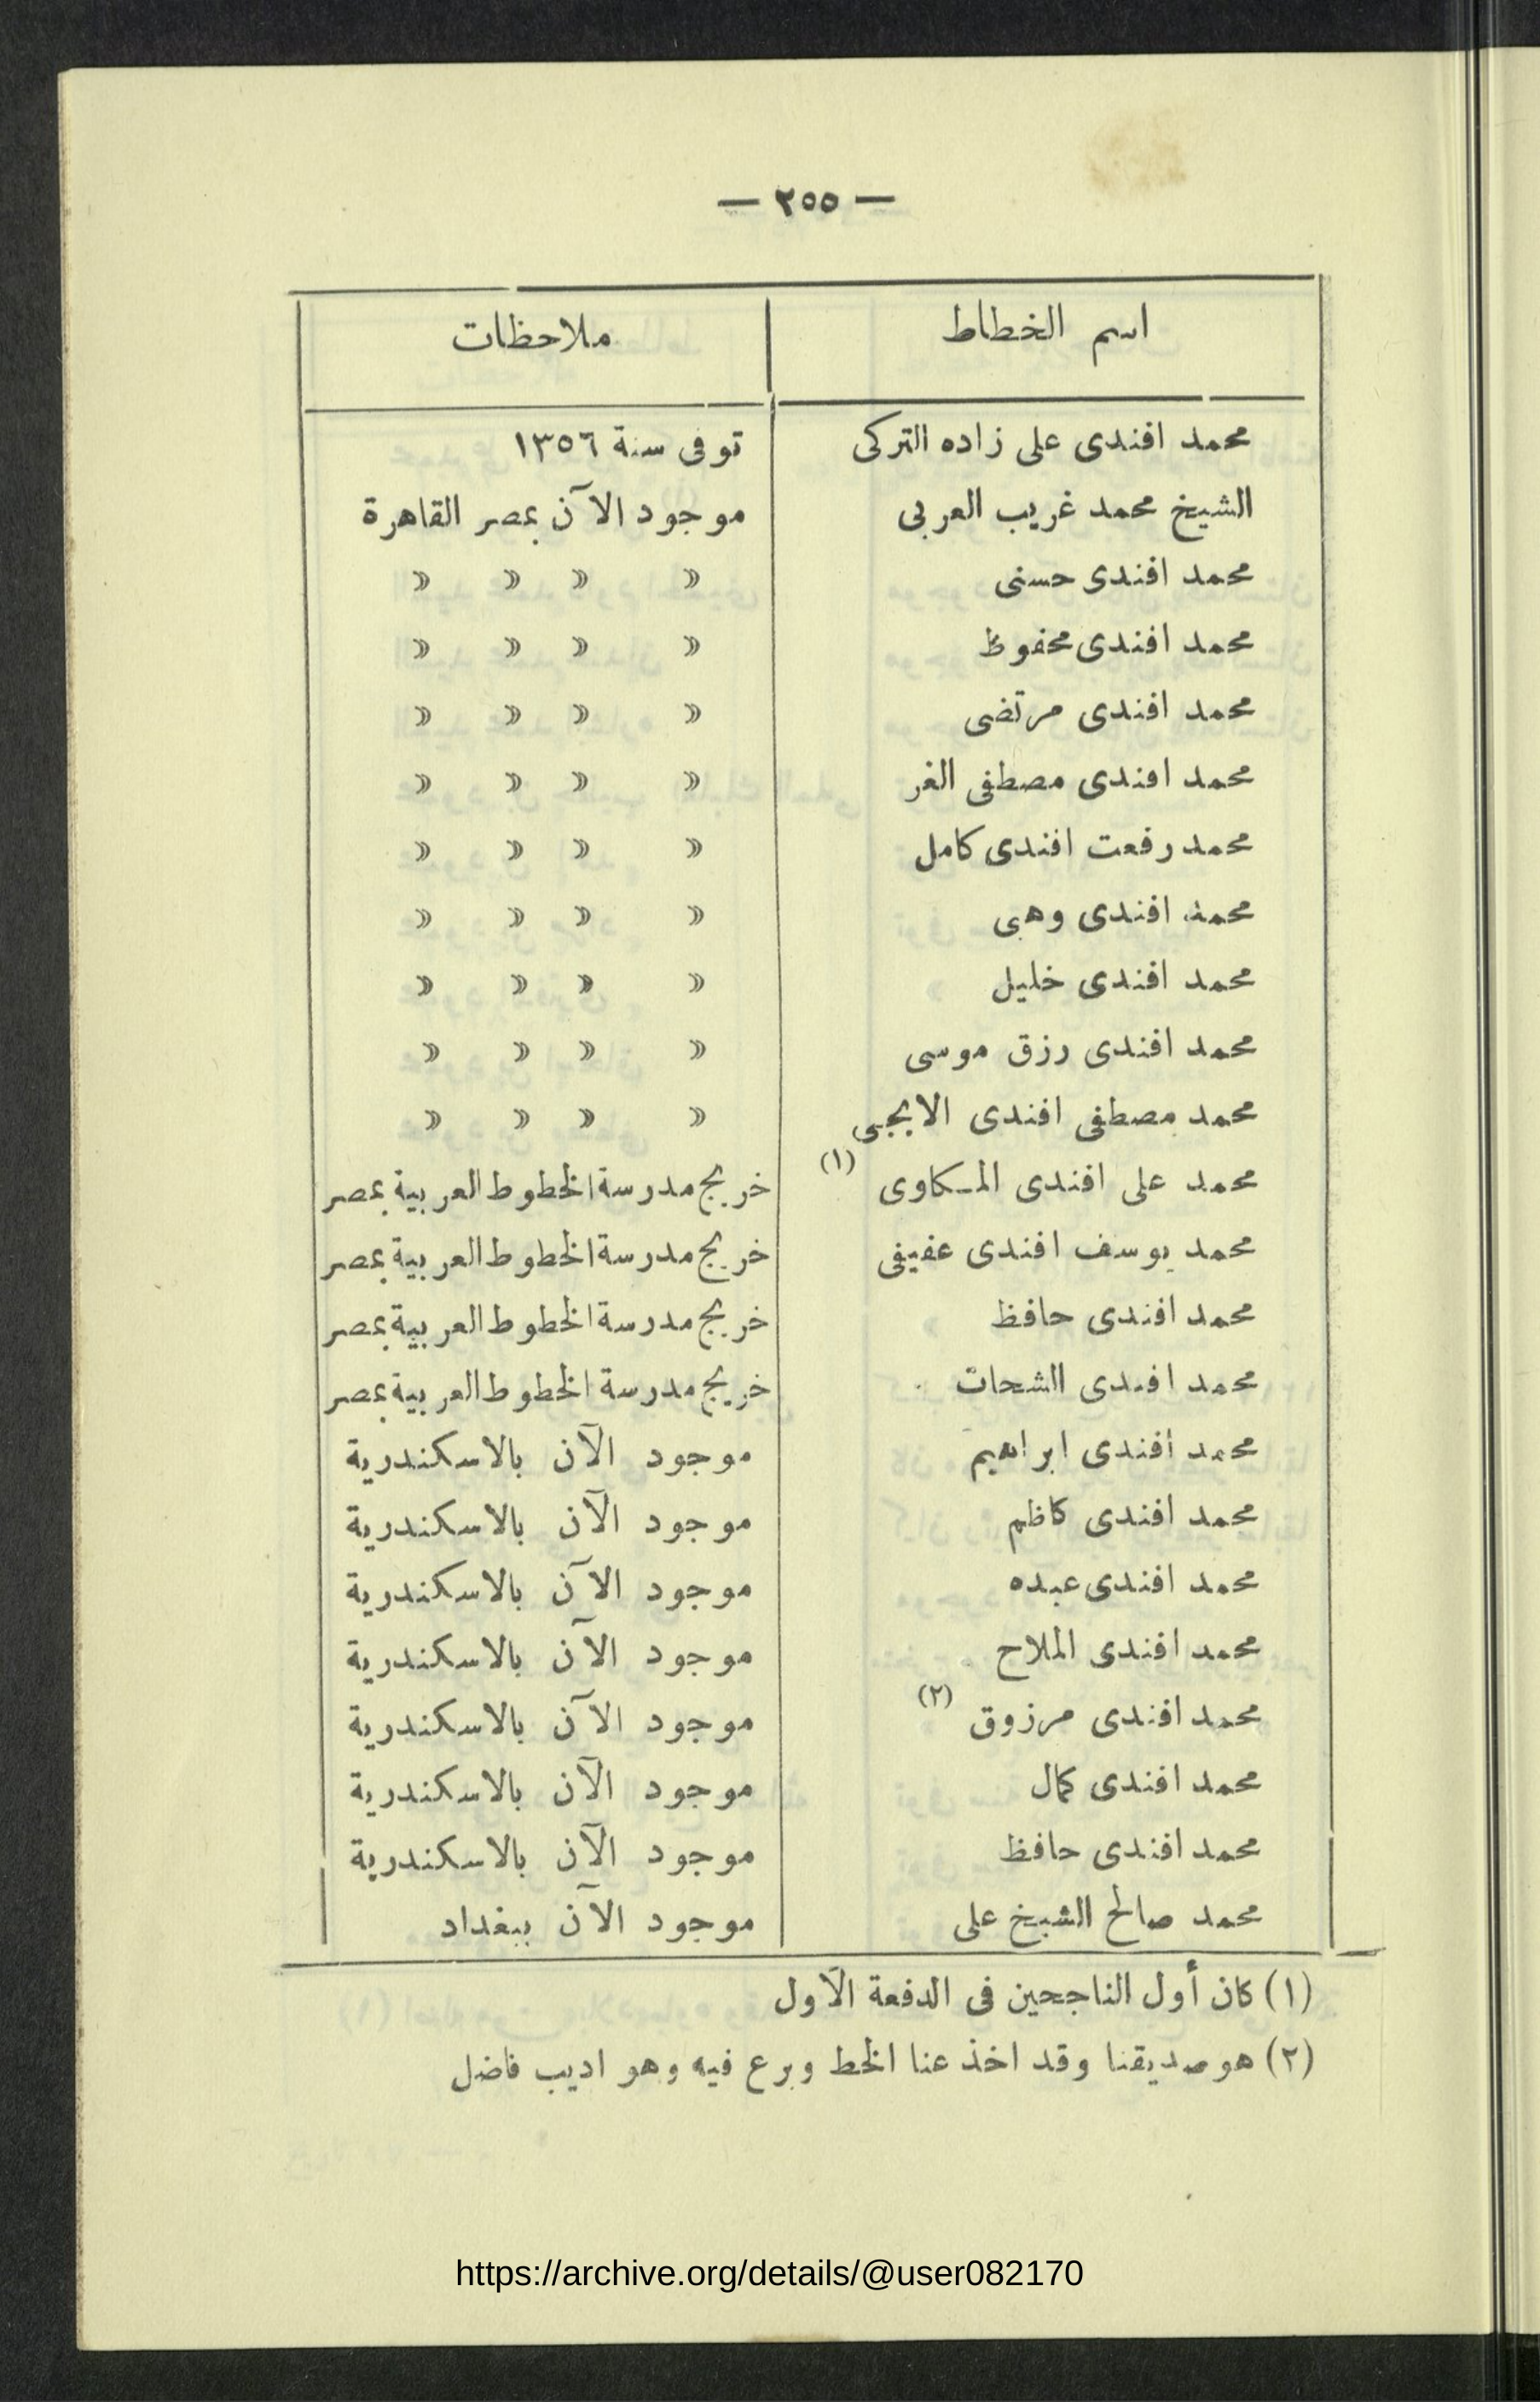 — ٢٥٥ —
اسم الخطاط ملاحظات
محمد افندى على زاده التركى توفى سنة ١٣٥٦
الشيخ محمد غريب العربى موجود الآن بمصر القاهرة
محمد افندى حسنى » » » »
محمد افندى محفوظ » » » »
محمد افندى مرتضى » » » »
محمد افندى مصطفى الغر » » » »
محمد رفعت افندى كامل » » » »
محمد افندى وهبى » » » »
محمد افندى خليل » » » »
محمد افندى رزق موسى » » » »
محمد مصطفى افندى » » » »
محمد على افندى المكاوى (١) خريج مدرسة الخطوط العربية بمصر
محمد يوسف افندى عفيفى خريج مدرسة الخطوط العربية بمصر
محمد افندى حافظ خريج مدرسة الخطوط العربية بمصر
محمد افندى الشحات خريج مدرسة الخطوط العربية بمصر
محمد افندى ابراهيم موجود الآن بالاسكندرية
محمد افندى كاظم موجود الآن بالاسكندرية
محمد افندى عبده موجود الآن بالاسكندرية
محمد افندى الملاح موجود الآن بالاسكندرية
محمد افندى مرزوق (٢) موجود الآن بالاسكندرية
محمد افندى كمال موجود الآن بالاسكندرية
محمد افندى حافظ موجود الآن بالاسكندرية
محمد صالح الشيخ على موجود الآن ببغداد
(١) كان أول الناجحين فى الدفعة الآول
(٢) هو صديقنا وقد اخذ عنا الخط وبرع فيه وهو اديب فاضل
https://archive.org/details/@user082170